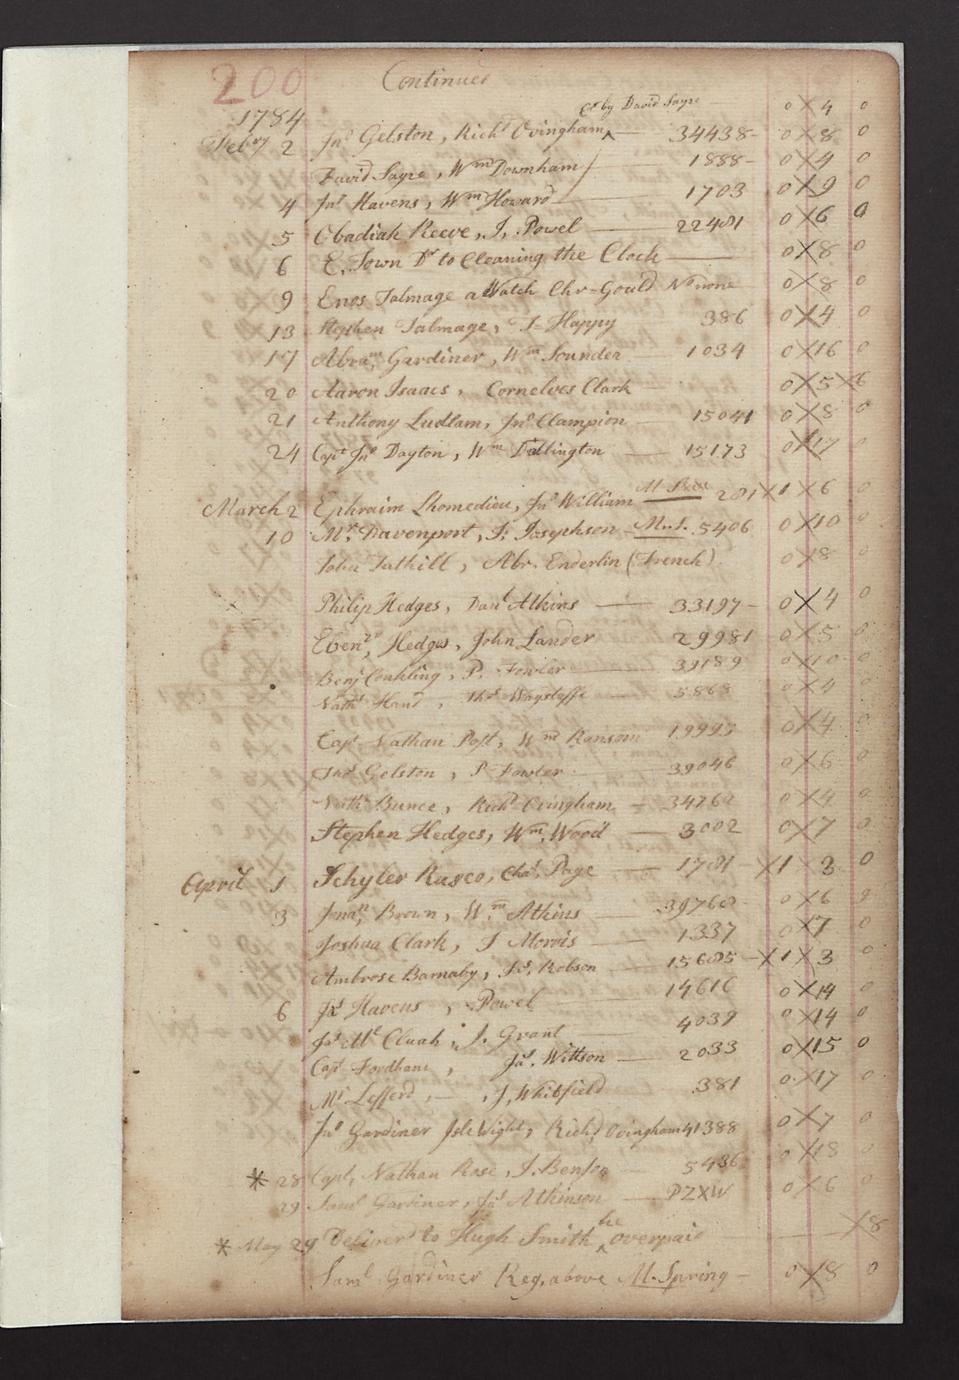 200 Continued
1784 Cr by David Sayre 0 X 4 0
Feby 2 Jno Gelston, Richd Ovingham ^ — 34438 - 0 X 8 0
David Sayre, Wm Downham — 1888 - 0 X 4 0
4 Jno Havens, Wm Howard — 1703 0 X 9 0
5 Obadiah Reeve, J. Powel — 22481 0 X 6 0
6 E. Town Dr to Cleaning the Clock — 0 X 8 0
9 Enos Talmage a Watch Chr-Gould No none 0 X 8 0
13 Stephen Talmage, J- Happy 386 0 X 4 0
17 Abram Gardiner, Wm Sounder — 1034 0 X 16 0
20 Aaron Isaacs, Cornelves Clark 0 X 5 X 6
21 Anthony Ludlam, Jno Clampion — 15041 0 X 8 0
24 Capt Jno Dayton, Wm Dallington — 15173 0 X 17 0
March 2 Ephraim Lhomedieu, Jno William 281 X 1 X 6 0
10 Mr Davenport, J: Josephson M.S. 5406 0 X 10 0
John Tuthill, Abr. Enderlin (French) 0 X 8 0
Philip Hedges, Danl Atkins — 33197 - 0 X 4 0
Ebenr Hedges, John Lander 29981 0 X 5 0
Benj Conkling, P. Fowler 39189 0 X 10 0
Nathl Hand, Thos Wagstaffe — 5863 0 X 4 0
Capt Nathan Post, Wm Ransom 19993 0 X 4 0
Jno Gelston, P Fowler — 39046 0 X 6 0
Nathl Bunce, Richd Ovingham — 34762 0 X 4 0
Stephen Hedges, Wm Wood — 3002 0 X 7 0
April 1 Schyler Rusco, Chas Page — 1781 - X 1 X 3 0
3 Jonan Brown, Wm Atkins — 39768 - 0 X 6 9
Joshua Clark, J Morris — 1337 0 X 7 0
Ambrose Barnaby, Js. Robson — 15685 - X 1 X 3 0
6 Js Havens, Powel — 14616 0 X 14 0
Js Mc Cluah, J. Grant — 4039 0 X 14 0
Capt Fordham, Js. Wittson — 2033 0 X 15 0
Mr Lefferd, — , J, Whitfield 381 0 X 17 0
Jno Gardiner Isle Wight, Richd Ovingham 41388 0 X 7 0
* 28 Capt, Nathan Rose, J. Benson — 5436 0 X 18 0
29 Saml Gardiner, Js Atkinson — PZXW 0 X 6 0
* May 29 Deliver'd to Hugh Smith ^ he overpaid — X 8
Saml Gardiner Reg, above M. Spring — 0 X 8 0